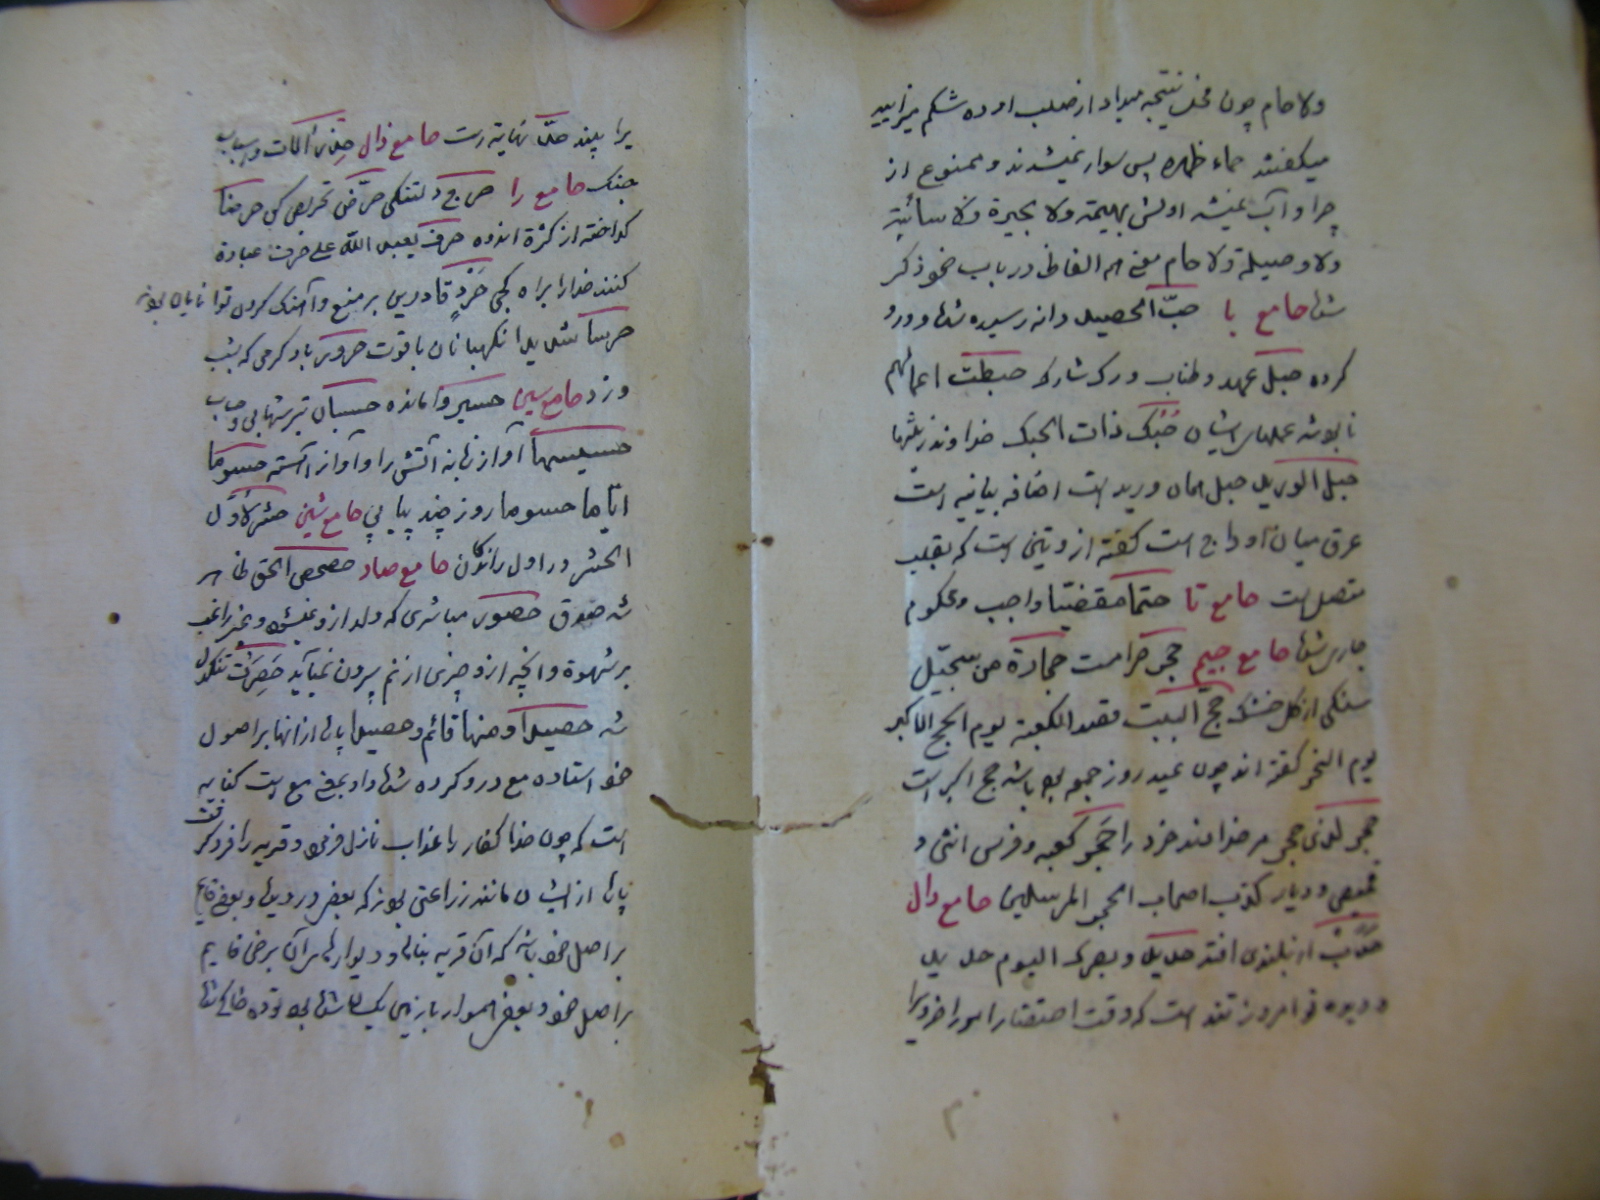 ولا حام چون فحل نتیجه میداد از صلب او ده شکم میزایید
میکفتند حماء ظهره پس سوار نمیشدند و ممنوع از
چرا و آب نمیشد اولش بهیمة ولا بحیرة ولا سائبة
ولا وصیلة ولا حام معنی الفاظ در باب خود ذکر
شد حا مع با حبّ الحصید دانه رسیده شده و درو
کرده حبل عهد و طناب و رک شارک حبطت اعمالهم
نابوشد عملهاس ایشان حُبُک ذات الحبک خداوند
حبل الورید حبل همان ورید است اضافه بیانیه است
عرق میان اوداج است کفته از وتین است که بقلب
متصل است حا مع تا حتما مقضیّا واجب و محکوم
حا مع جیم حجر حرامست حجارة من سجّیل
سنکی از کل خشک حجّ البیت قصد الکعبة یوم الحج الاکبر
یوم النحر کفته اند چون عید روز جمعه باشد حج اکبر است
حجر لذی حجر مر خداوند خرد را حجر کعبه و فرس انثی و
قمیص و دیار کذب اصحاب الحجر المرسلین حا مع دال
حدب از بلندی افتد حدید و بصرک الیوم حدید
و دیده تو امروز تند است که وقت احتضار امور اخرویرا
یرا بیند حدّ نهایة است حا مع ذال آلات و اسباب
جنک حا مع را حرج دلتنکی حرّض تحریص کن حرضا
کداخته از کثرة اندوه حرف یعبد الله علی حرف عبادة
کنند خدا را براه کجی حَردٍ قادرین بر منع و آهنک کردن توانایان بودند
حرسا شدیدا نکهبانان با قوت حرور باد کرمی که بشب
وزد حا مع سین حسیر وا مانده حسبان تیر شهابی و حساب
حسیسها آواز زبانه آتش را و آواز آهسته حسوما
ایّاما حسوما روز چند پیاپی حا مع شین حشر لاوّل
الحشر در اول راندن حا مع صاد حصحص الحق ظاهر
شد حقوق حصور مباشری که ولد از و نمیشود و غیر راغب
بر شهوة و آنچه از و چیزی از نم بیرون نمیآید حَصِرَت تنکدل
شد حصیدا و منها قائم و حصید پاره از انها بر اصول
خود استاده مع درو کرده شده و بعضی مع است کنایه
است که چون خدا کفار را عذاب نازل فرمود و قریه را
پاره از ایشان مانند زراعتی بود که بعض درویده و بعض قایم
بر اصل خود باشد که آن قریه بناها و دیوارهاس آن برخی قایم
بر اصل خود و بعض هموار با زمین یکسان شده بود توده خاکی شد